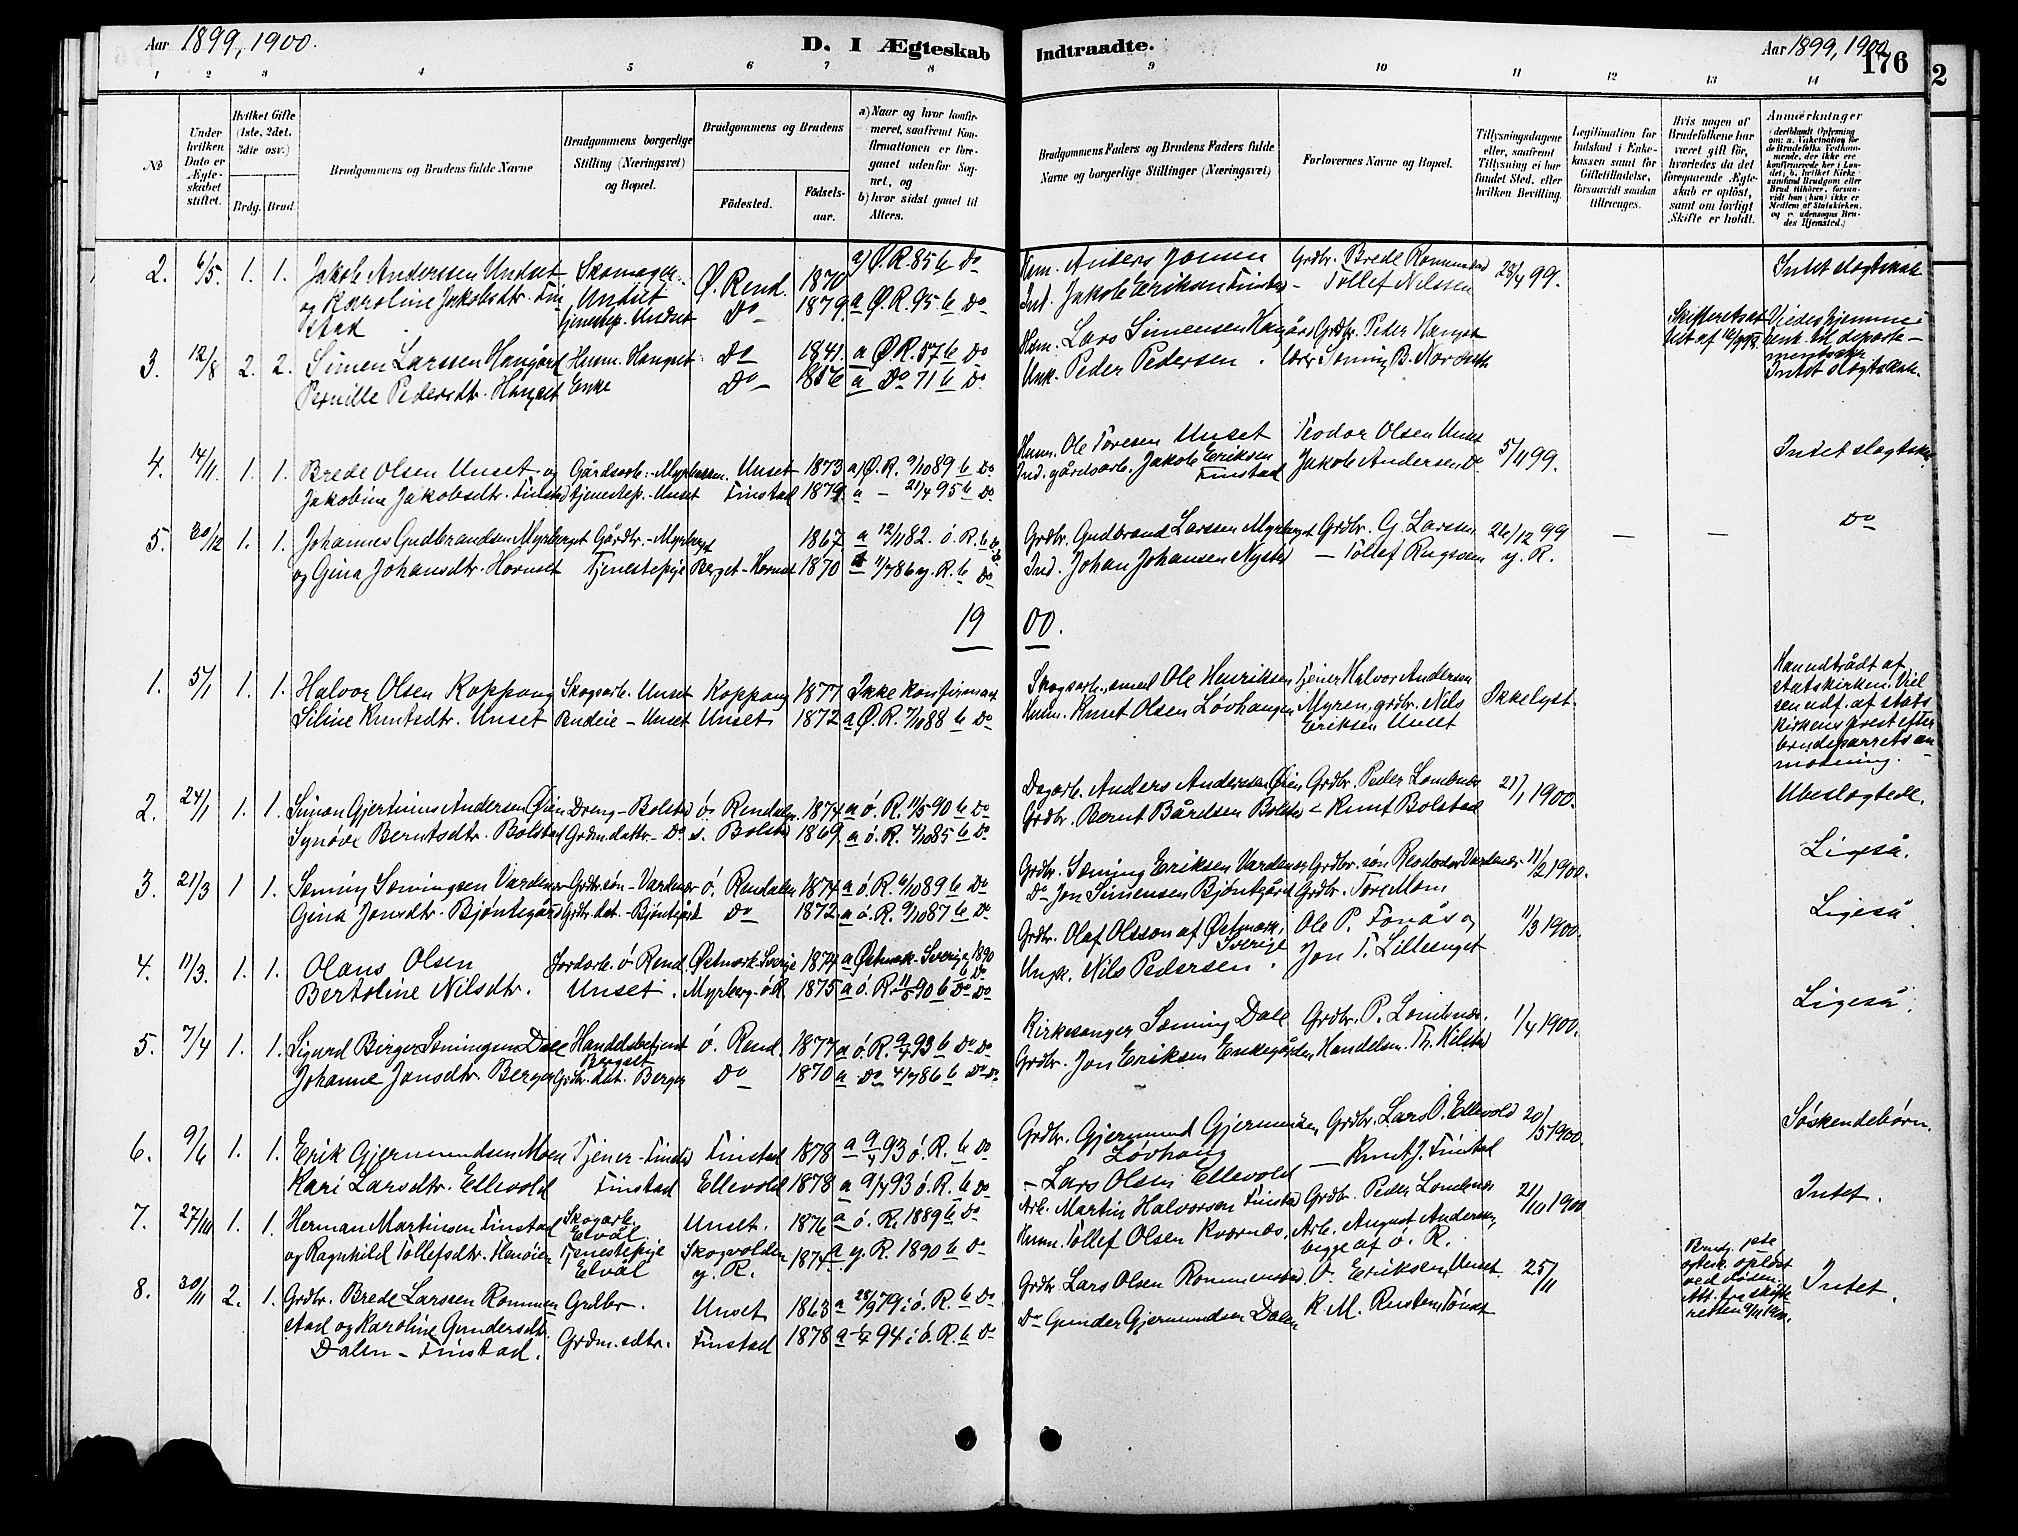 Aar 1899, 1900.
D. I Ægteskab
Indtraadte.
Aar 1899, 1900.
176
2
1 2 3 4 5 6 7 8
9 10 11 12 13 14
No
Under hvilken Dato er Ægteskabet stiftet.
Hvilket Gifte (1ste, 2det, 3die osv.)
Brdg. Brud.
Brudgommens og Brudens fulde Navne
Brudgommens borgerlige Stilling (Næringsvei) og Bopæl.
Brudgommens og Brudens
Födested.
Födsels-aar.
a) Naar og hvor konfirmeret, saafremt Konfirmationen er foregaaet udenfor Sognet, og
b) hvor sidst gaaet til Alters.
Brudgommens Faders og Brudens Faders fulde Navne og borgerlige Stillinger (Næringsvei)
Forlovernes Navne og Bopæl.
Tillysningsdagene eller, saafremt Tillysning ei har fundet Sted, efter hvilken Bevilling.
Legitimation for Indskud i Enkekassen samt for Giftetilladelse, forsaavidt saadan tiltrænges.
Hvis nogen af Brudefolkene har været gift før, hvorledes da det foregaaende Ægteskab er oplöst, samt om lovligt Skifte er holdt.
Anmærkninger
2. 6/5. 1. 1. Jakob Anderssen Undset Skomager. Ø. Rend. 1870 a) Ø. R. 85 b Do
og Karoline Jakobsdtr. Fin Undset Do 1879. a Ø. R. 95 b Do
stad tjenestep. Undset
Husm. Anders Jonsen Grdbr. Brede Rommundst 28/4 99. Intet slægtskab
Ind. Jakob Eriksen Finstad – Tollef Nilssen
3. 12/8 2. 2. Simen Larssen Hangård Husm. Hangset Do 1841. a Ø. R. 57 b Do
Pernille Pedersdtr. Hangset Enke Do 1856 a Do 71 b Do
Husm. Lars Simensen Hangård Grdbr. Peder Hangset
Unk. Peder Pedersen. lærer Søming B. Nordseth
Intet slægtskab.
4. 14/11. 1. 1. Brede Olsen Unset og Gårdsarb. Unset 1873 a) Ø. R. 9/10 89 b Do
Jakobine Jakobsdtr. Finstad tjenestep. Unset Finstad 1879. a – 21/4 95 b Do
Husm. Ole Toresen Unset Teodor Olsen Unset 5/11 99. Intet slægtsk.
Ind. gårdsarb. Jakob Eriksen Finstad Jakob Andersen Do
5. 30/12 1. 1. Johannes Gudbrandsen Myrberget Gårdbr. Myrberget 1867 a 12/11 82. ö. R. b Do
og Gina Johansdtr. Hornset Tjenestepije Berget – Hornset 1870 a 11/7 86 y. R. b Do
Grdbr. Gudbrand Larssen Myrberget Grdbr. G. Larssen 26/12 99 – – Do
Ind. Johan Johansen Nysted – Tollef Rugsveen y. R.
19 00.
1. 5/1 1. 1. Halvor Olsen Koppang Skogsarb. Unset Koppang 1877 Ikke konfirmeret
Siline Knutsdtr. Unset Pendeie – Unset Unset 1872 a Ø. R. 7/10 88 b Do
Skogsarb. smed Ole Henriksen Tjener Halvor Andersen
Husm. Knut Olsen Løvhaugen Myren, grdbr. Nils Eriksen Unset
Ikke lyst.
Han udtrådt af statskirken. Vielsen udf. af statskirkens prest efter brudeparrets anmodning.
2. 24/1 1. 1. Simon Gjertinius Andersen Øien Dreng – Bolstad ö. Rendalen 1874 a ö. R. 11/5 90 b Do
Synøve Berntsdtr. Bolstad Grdm. dattr – Do s. Bolstad 1869 a ö. R. 4/10 85 b Do
Dagarb. Anders Andersen Øien Grdbr. Peder Lomnæs 21/1 1900. Ubeslægtede.
Grdbr. Bernt Bårdsen Bolstad – Knut Bolstad
3. 21/3 1 1. Søming Sømingsen Vardenær Grdbr. søn – Vardenær ö. Rendalen 1874 a ö. R. 6/10 89 b Do
Gina Jonsdtr. Bjöntegård Grdbr. dat. – Bjöntgård Do 1872 a ö. R. 9/10 87 b Do
Grdbr. Søming Eriksen Vardenær Grdbr. søn Vardenær 11/2 1900. Ligeså.
Do Jon Simensen Bjöntgård Grdbr. Tore Mom
4. 11/3. 1. 1. Olaus Olsen Jordarb. ö. Rend. Østmark Sverige 1874 a Østmark Sverige 1890 b Do
Bertoline Nilsdtr. Unset. Myrberg – ö. R. 1875 a ö. R. 11/5 90 b Do
Grdbr. Olaf Olsson af Østmark, Sverige Ole P. Fonås og 11/3 1900. Ligeså
Ungk. Nils Pedersen. Jon T. Lilleenget
5. 7/4 1. 1. Sigurd Berger Sömingsen Dale Handelsbetjent Berget ö. Rend. 1877 a ö. R. 9/4 93 b Do
Johanne Jonsdtr. Berger Grdbr. dat. Berger Do 1870 a Do 4/7 86 b Do
Kirkesanger Søming Dale Grdbr. P. Lomnæs. 1/4 1900. Ligeså.
Grdbr. Jon Eriksen Enkegården, Handelsm. Th. Kilstad
6. 9/6 1. 1. Erik Gjermundsen Moen Tjener – Finstad Finstad 1878 a 9/4 93 ö. R. b Do
Kari Larsdtr. Ellevold Finstad Ellevold 1878 a 9/4 93 ö. R. b Do
Grdbr. Gjermund Gjermundsen Løvhaug Grdbr. Lars O. Ellevold 20/5 1900. Søskendebörn.
– Lars Olsen Ellevold – Knut J. Finstad
7. 27/10. 1. 1. Herman Martinsen Finstad Skogarb. Elvål Unset. 1876 a ö. R. 1889 b Do
og Ragnhild Tollefsdtr. Henöien Tjenestepije Elvål Skogvolden y. R. 1874 a y. R. 1890 b Do
Arb. Martin Halvorsen Finstad Grdbr. Peder Lomnæs 21/10 1900 Intet.
Husm. Tollef Olsen Kværnes, Arb. August Andersen, begge af ö. R.
8. 30/11 2. 1. Grdbr. Brede Larssen Rommen Grdbr. Unset 1863 a 28/9 79 i ö. R. b Do
stad og Karoline Gundersdtr. Grdm. sdtr. Finstad 1878 a 94 i ö. R. b Do
Dalen – Finstad.
Grdbr. Lars Olsen Rommenstad, O. Eriksen, Unset. 25/11 Intet.
Do Gunder Gjermundsen Dalen K. M. Rusten, Tönset
Brudg. 1ste ægtesk. opløst ved döden. Att. fra skifteretten 9/11 1900.